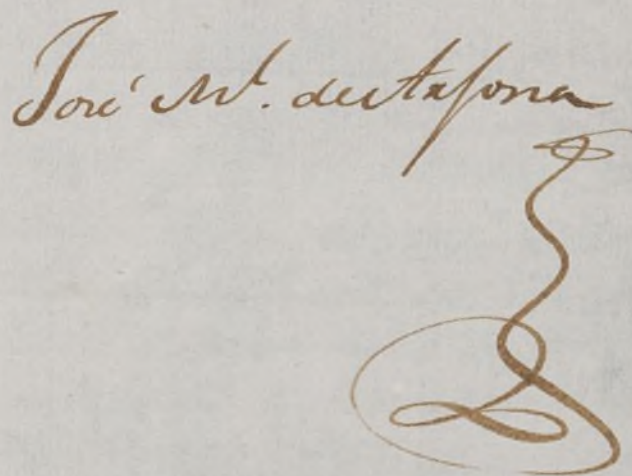 José M.ª de Arjona